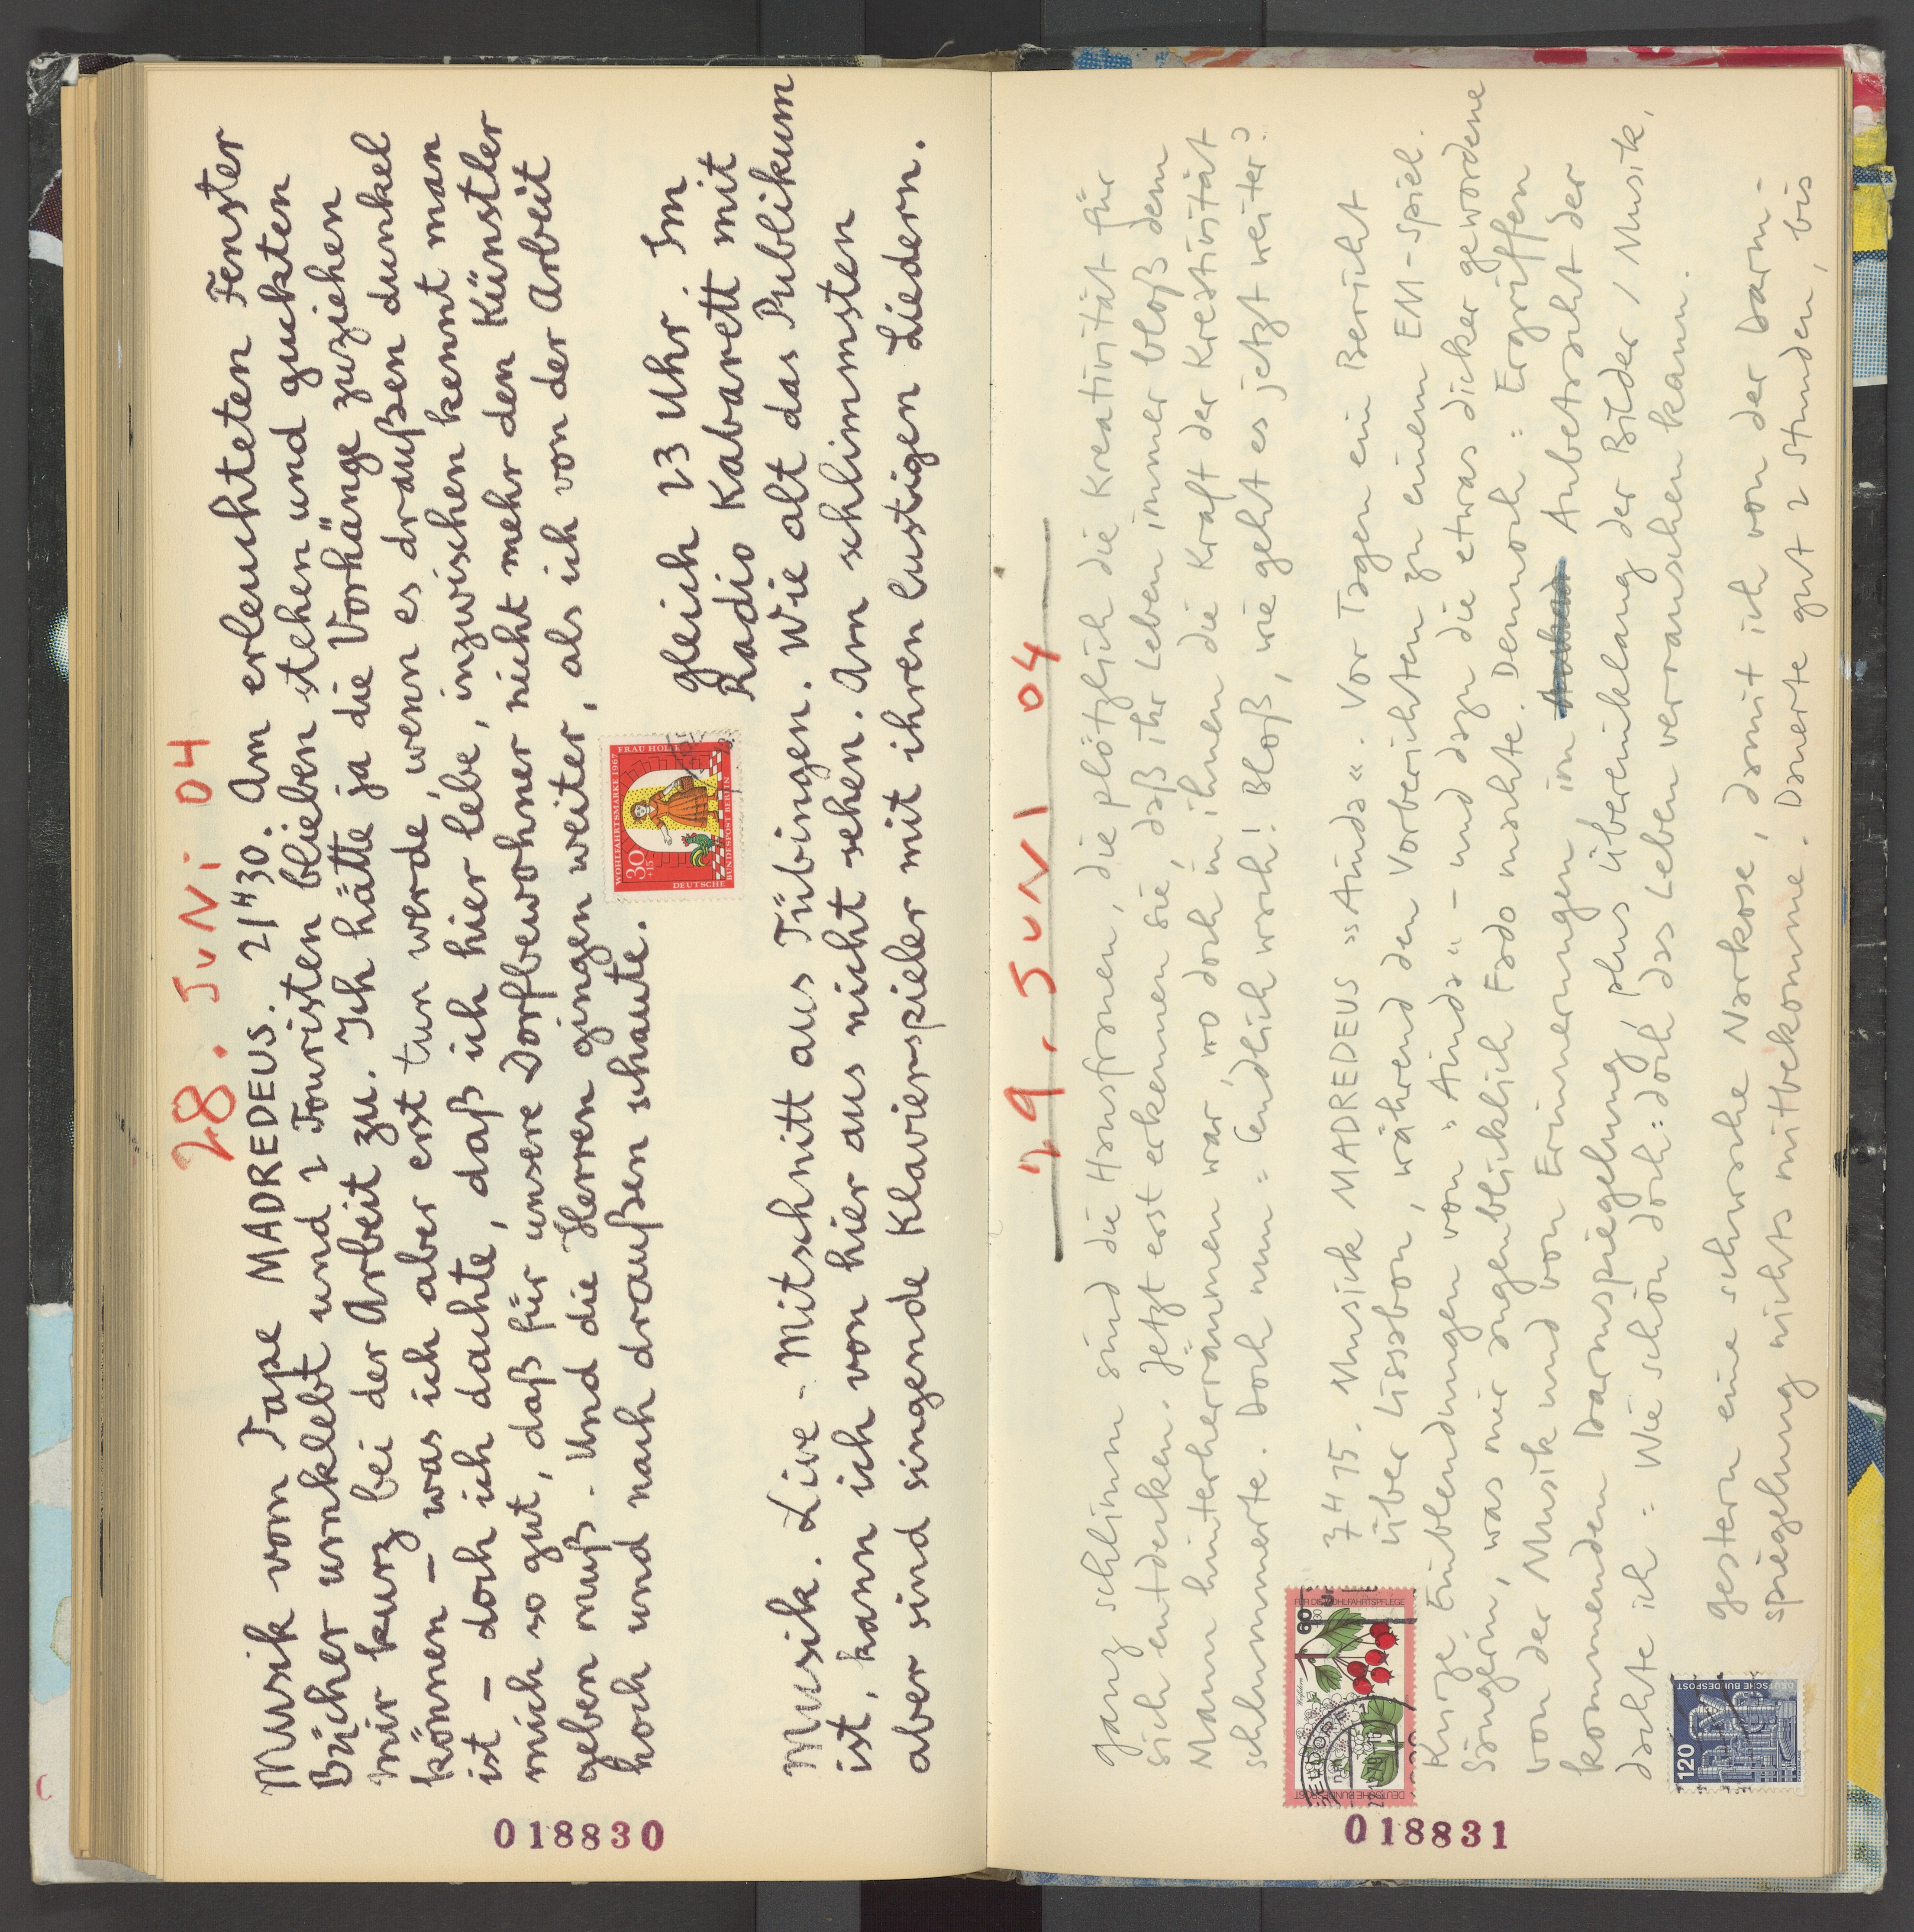 28. JUNI 04
Musik vom Tape MADREDEUS. 21 H 30. Am erleuchteten Fenster
Bücher umklebt und 2 Touristen blieben stehen und guckten
mir kurz bei der Arbeit zu. Ich hätte ja die Vorhänge zuziehen
können – was ich aber erst tun werde, wenn es draußen dunkel
ist – doch ich dachte, daß ich hier lebe, inzwischen kennt man
mich so gut, daß für unsere Dorfbewohner nicht mehr den Künstler
geben muß. Und die Herren gingen weiter, als ich von der Arbeit
hoch und nach draußen schaute.
WOHLFAHRTSMARKE 1967
FRAU HOLLE
30
+15
DEUTSCHE BUNDESPOST BERLIN
gleich 23 Uhr. Im
Radio Kabarett mit
Musik. Live-Mitschnitt aus Tübingen. Wie alt das Publikum
ist, kann ich von hier aus nicht sehen. Am schlimmsten
aber sind singende Klavierspieler mit ihren lustigen Liedern.
018830
29. JUNI 04
ganz schlimm sind die Hausfrauen, die plötzlich die Kreativität für
sich entdecken. Jetzt erst erkennen sie, daß ihr Leben immer bloß dem
Mann hinterherräumen war, wo doch in ihnen die Kraft der Kreativität
schlummerte. Doch nun: endlich wach! Bloß, wie geht es jetzt weiter?
7 H 15. Musik MADREDEUS »Ainda«. Vor Tagen ein Bericht
über Lissabon, während den Vorberichten zu einem EM-Spiel.
Kurze Einblendungen von »Ainda« – und dazu die etwas dicker gewordene
Sängerin, was mir augenblicklich Fado machte. Dennoch: Ergriffen
von der Musik und von Erinnerungen im Anbetracht der
kommenden Darmspiegelung, plus Übereinklang der Bilder / Musik,
dachte ich: Wie schön doch: doch das Leben verrauschen kann.
FÜR DIE WOHLFAHRTSPFLEGE
60
DEUTSCHE BUNDESPOST
gestern eine schwache Narkose, damit ich von der Darm-
spiegelung nichts mitbekomme. Dauerte gut 2 Stunden, bis
120
DEUTSCHE BUNDESPOST
018831